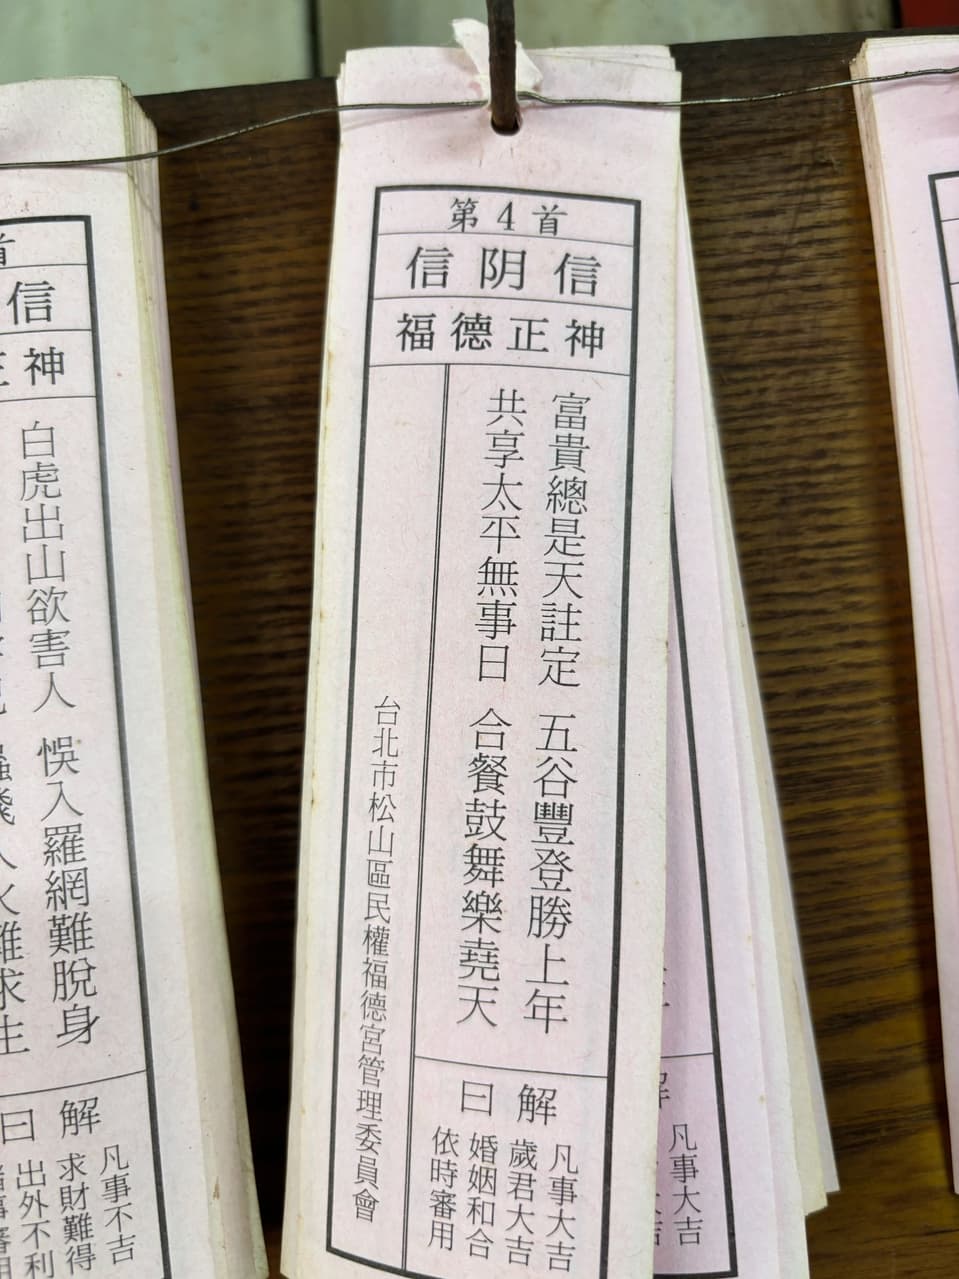 第4首
信阴信
福德正神
富貴總是天註定 五谷豐登勝上年
共享太平無事日 合餐鼓舞樂堯天
解曰
凡事大吉
歲君大吉
婚姻和合
依時審用
台北市松山區民權福德宮管理委員會
首
信
正神
白虎出山欲害人 悞入羅網難脫身
人火難求生
解曰
凡事不吉
求財難得
出外不利
事審用
解
凡事大吉
大吉